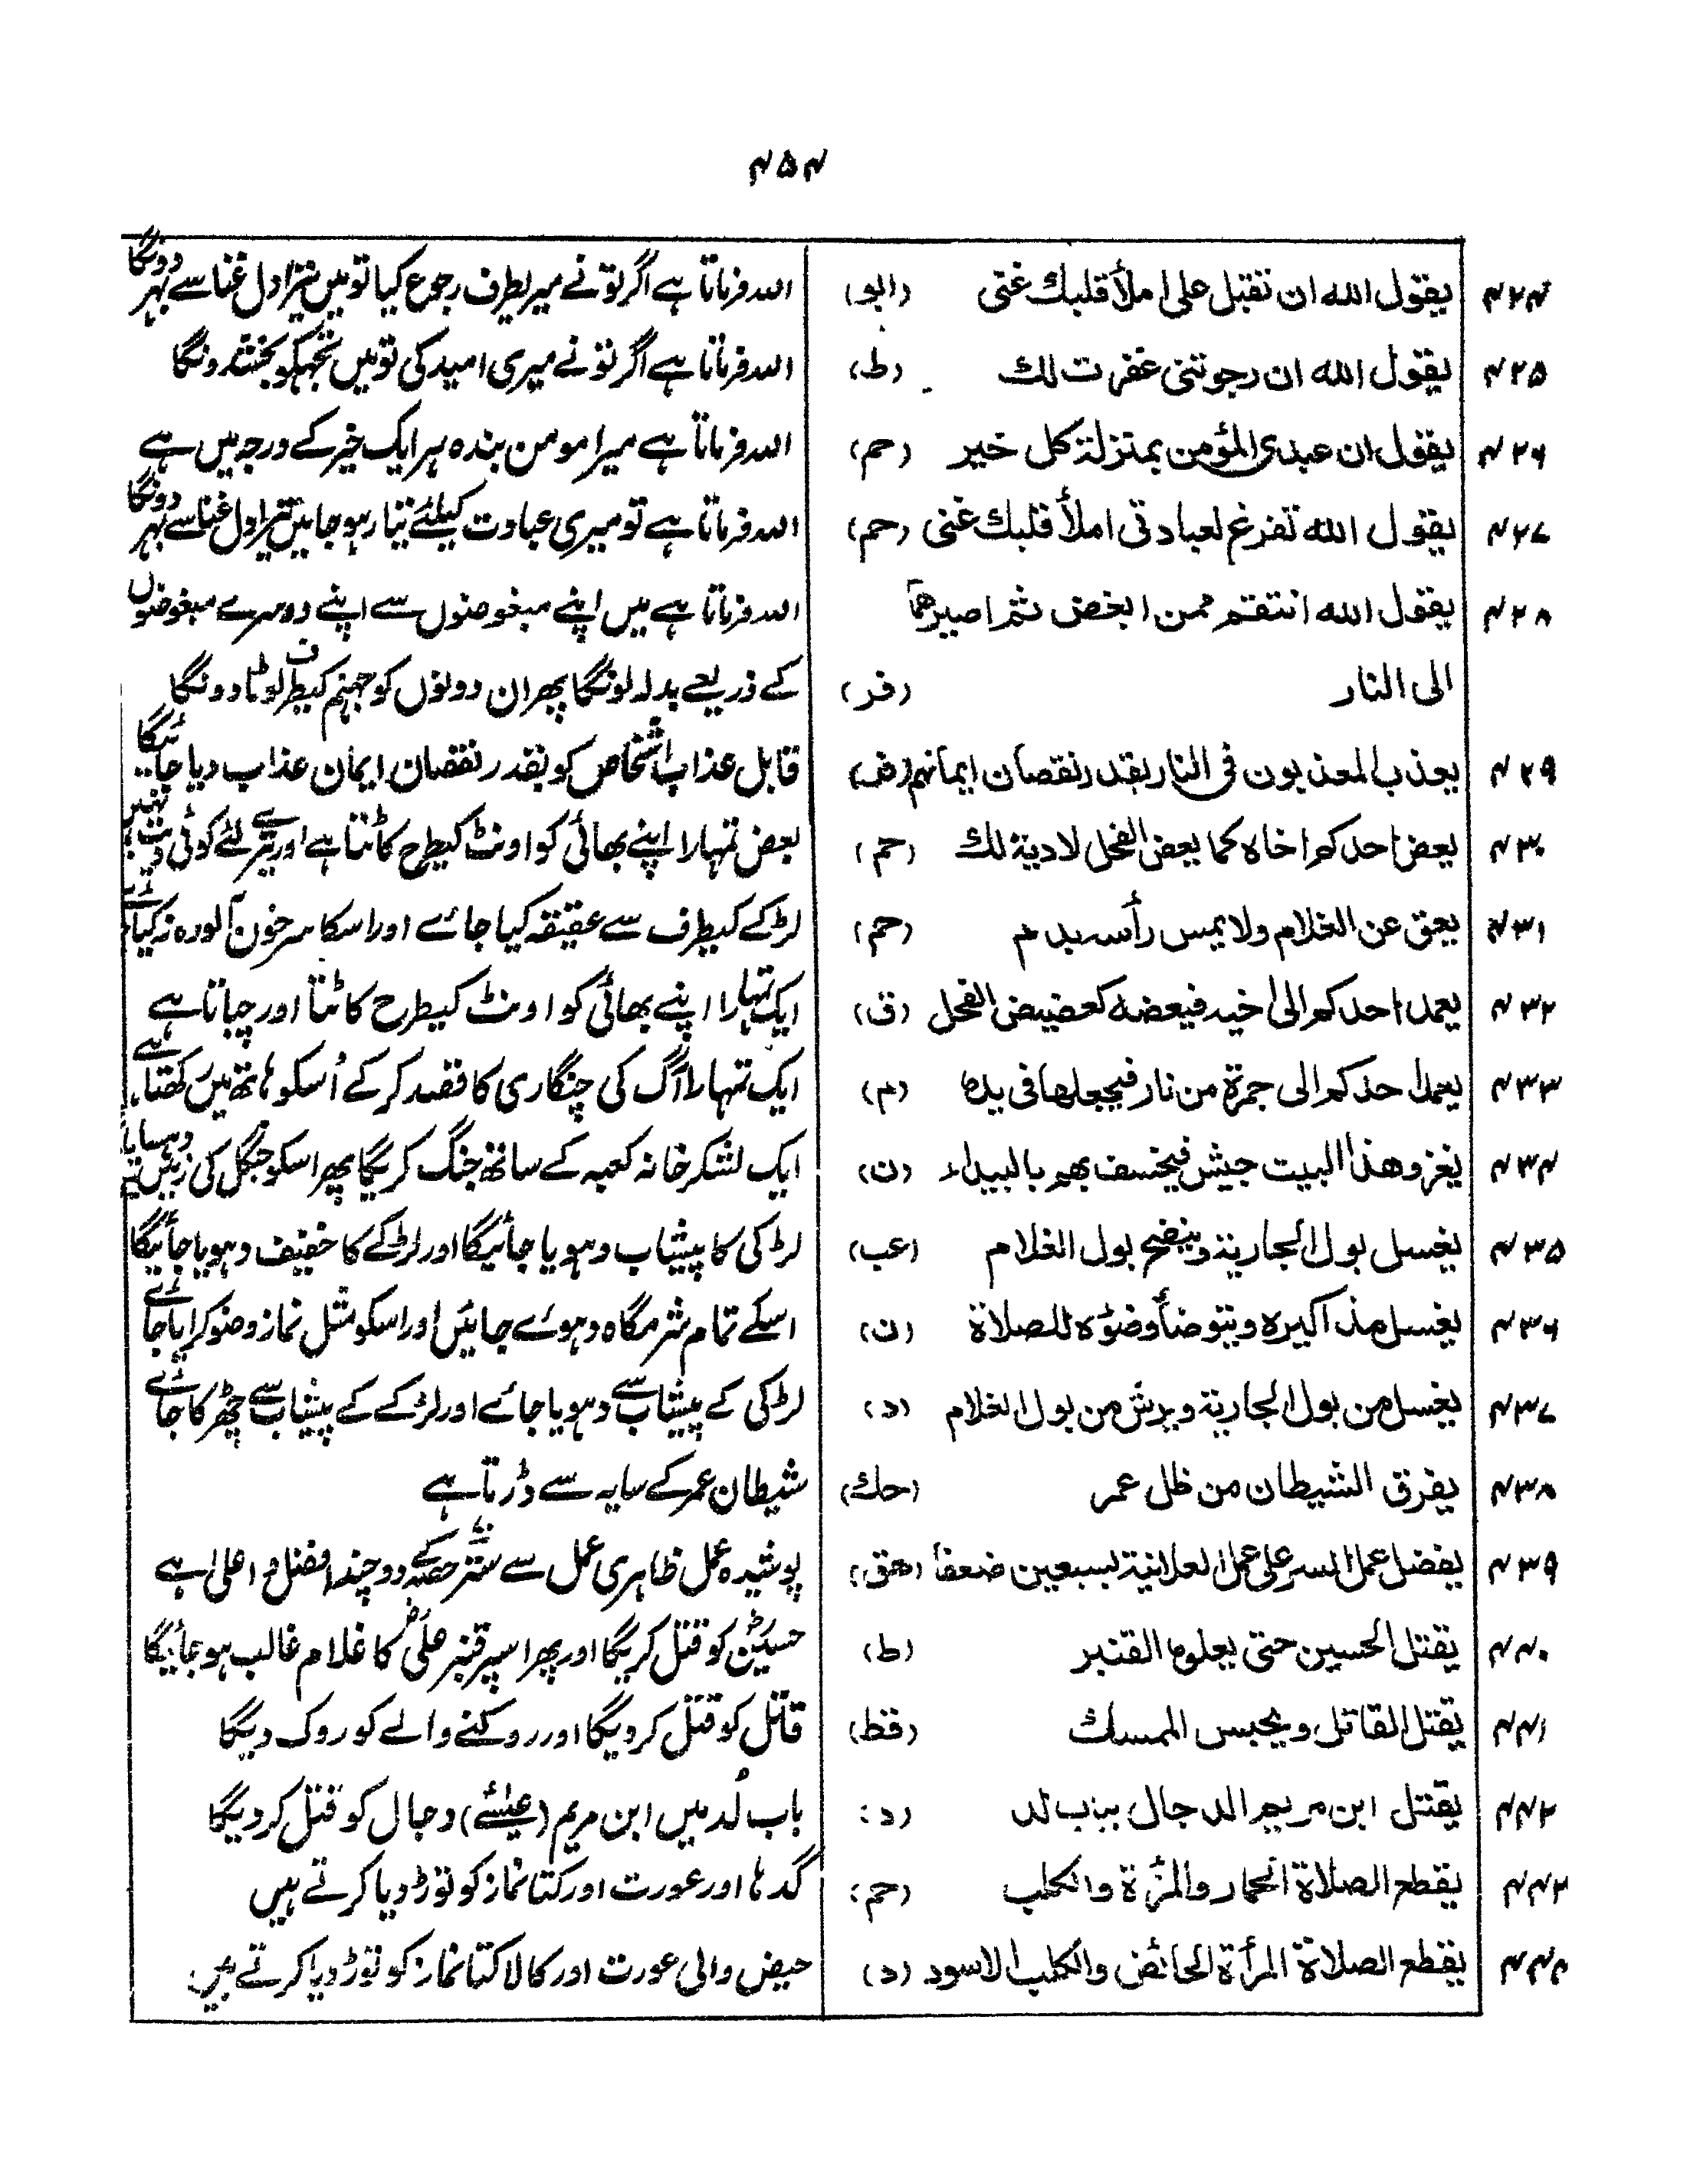 ۴۵۴
۴۲۴ یقول الله ان تقبل علی املأ قلبك غنی (ابو) اللہ فرماتا ہے اگر تو نے میریطرف رجوع کیا تو میں تیرا دل غنا سے بہر دونگا
۴۲۵ یقول الله ان رجوتنی غفرت لك (ط) اللہ فرماتا ہے اگر تو نے میری امید کی تو میں تجہکو بخشدونگا
۴۲۶ یقول ان عبدی المؤمن بمنزلة کل خیر (حم) اللہ فرماتا ہے میرا مومن بندہ ہر ایک خیر کے درجہ میں ہے
۴۲۷ یقول الله تفرغ لعبادتی املأ قلبك غنی (حم) اللہ فرماتا ہے تو میری عبادت کیلئے تیار ہو جا میں تیرا دل غنا سے بہر دونگا
۴۲۸ یقول الله انتقم ممن ابغض ثم اصیرهما اللہ فرماتا ہے میں اپنے مبغوضوں سے اپنے دوسرے مبغوضوں
الی النار (فر) کے ذریعے بدلہ لونگا پھر ان دونوں کو جہنم کیطرف لوٹا دونگا
۴۲۹ یعذب المعذبون فی النار بقدر نقصان ایمانهم (ف) قابل عذاب اشخاص کو بقدر نقصان ایمان عذاب دیا جائیگا
۴۳۰ یعض احدکم اخاه کما یعض الفحل لا دیة لك (حم) بعض تمہارا اپنے بھائی کو اونٹ کیطرح کاٹتا ہے اور تیرے لئے کوئی دیت نہیں
۴۳۱ یعق عن الغلام ولا یمس رأسه بدم (حم) لڑکے کیطرف سے عقیقہ کیا جائے اور اسکا سر خون آلودہ نہ کیا جائے
۴۳۲ یعمد احدکم الی اخیه فیعضه کعضیض الفحل (ق) ایک تمہارا اپنے بھائی کو اونٹ کیطرح کاٹتا اور چباتا ہے
۴۳۳ یعمد احدکم الی جمرة من نار فیجعلها فی یده (م) ایک تمہارا آگ کی چنگاری کا قصد کر کے اُسکو ہاتھ میں رکھتا ہے
۴۳۴ یغزو هذا البیت جیش فیخسف بهم بالبیداء (ن) ایک لشکر خانہ کعبہ کے ساتھ جنگ کریگا پھر اسکو جنگل کی زمین میں
۴۳۵ یغسل بول الجاریة وینضح بول الغلام (عب) لڑکی کا پیشاب دہویا جائیگا اور لڑکے کا خفیف دہویا جائیگا
۴۳۶ یغسل مذاکیره ویتوضأ وضوٴه للصلاة (ن) اسکے تمام شرمگاہ دہوئے جائیں اور اسکو مثل نماز وضو کرایا جائے
۴۳۷ یغسل من بول الجاریة ویرش من بول الغلام (د) لڑکی کے پیشاب سے دہویا جائے اور لڑکے کے پیشاب سے چھڑکا جائے
۴۳۸ یفرق الشیطان من ظل عمر (حك) شیطان عمر کے سایہ سے ڈرتا ہے
۴۳۹ یفضل عمل السر علی عمل العلانیة بسبعین ضعفا (هق) پوشیدہ عمل ظاہری عمل سے ستر حصہ کے دو چند افضل و اعلیٰ ہے
۴۴۰ یقتل الحسین حتی یعلوه القنبر (ط) حسینؓ کو قتل کریگا اور پھر اسپر قنبر علیؓ کا غلام غالب ہو جائیگا
۴۴۱ یقتل القاتل ویحبس الممسك (قط) قاتل کو قتل کر دیگا اور روکنے والے کو روک دیگا
۴۴۲ یقتل ابن مریم الدجال بباب لد (د) باب لُد میں ابن مریم (عیسٰے) دجال کو قتل کر دیگا
۴۴۳ یقطع الصلاة الحمار والمرأة والکلب (حم) گدہا اور عورت اور کتا نماز کو توڑ دیا کرتے ہیں
۴۴۴ یقطع الصلاة المرأة الحائض والکلب الاسود (د) حیض والی عورت اور کالا کتا نماز کو توڑ دیا کرتے ہیں